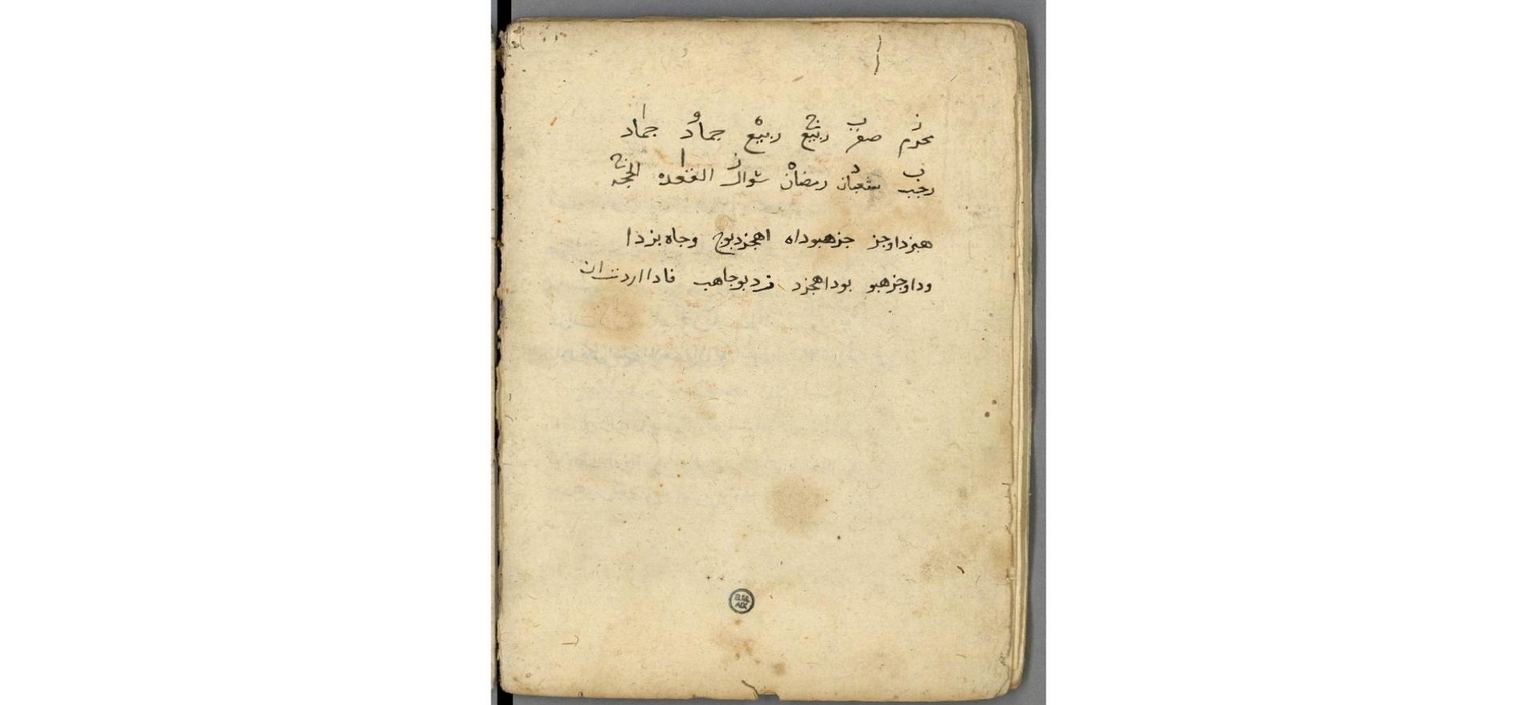 ز ب ج ه و ا
محرم صفر ربيع ربيع جماد جماد
ب د ه ز ا ج
رجب شعبان رمضان شوال القعده الحجه
هبزداوجز جزهبوداه اهجزدبوج وجاه بزدا
وداوجزهبو بوداهجزد زدبوجاهب فادا اردت ان